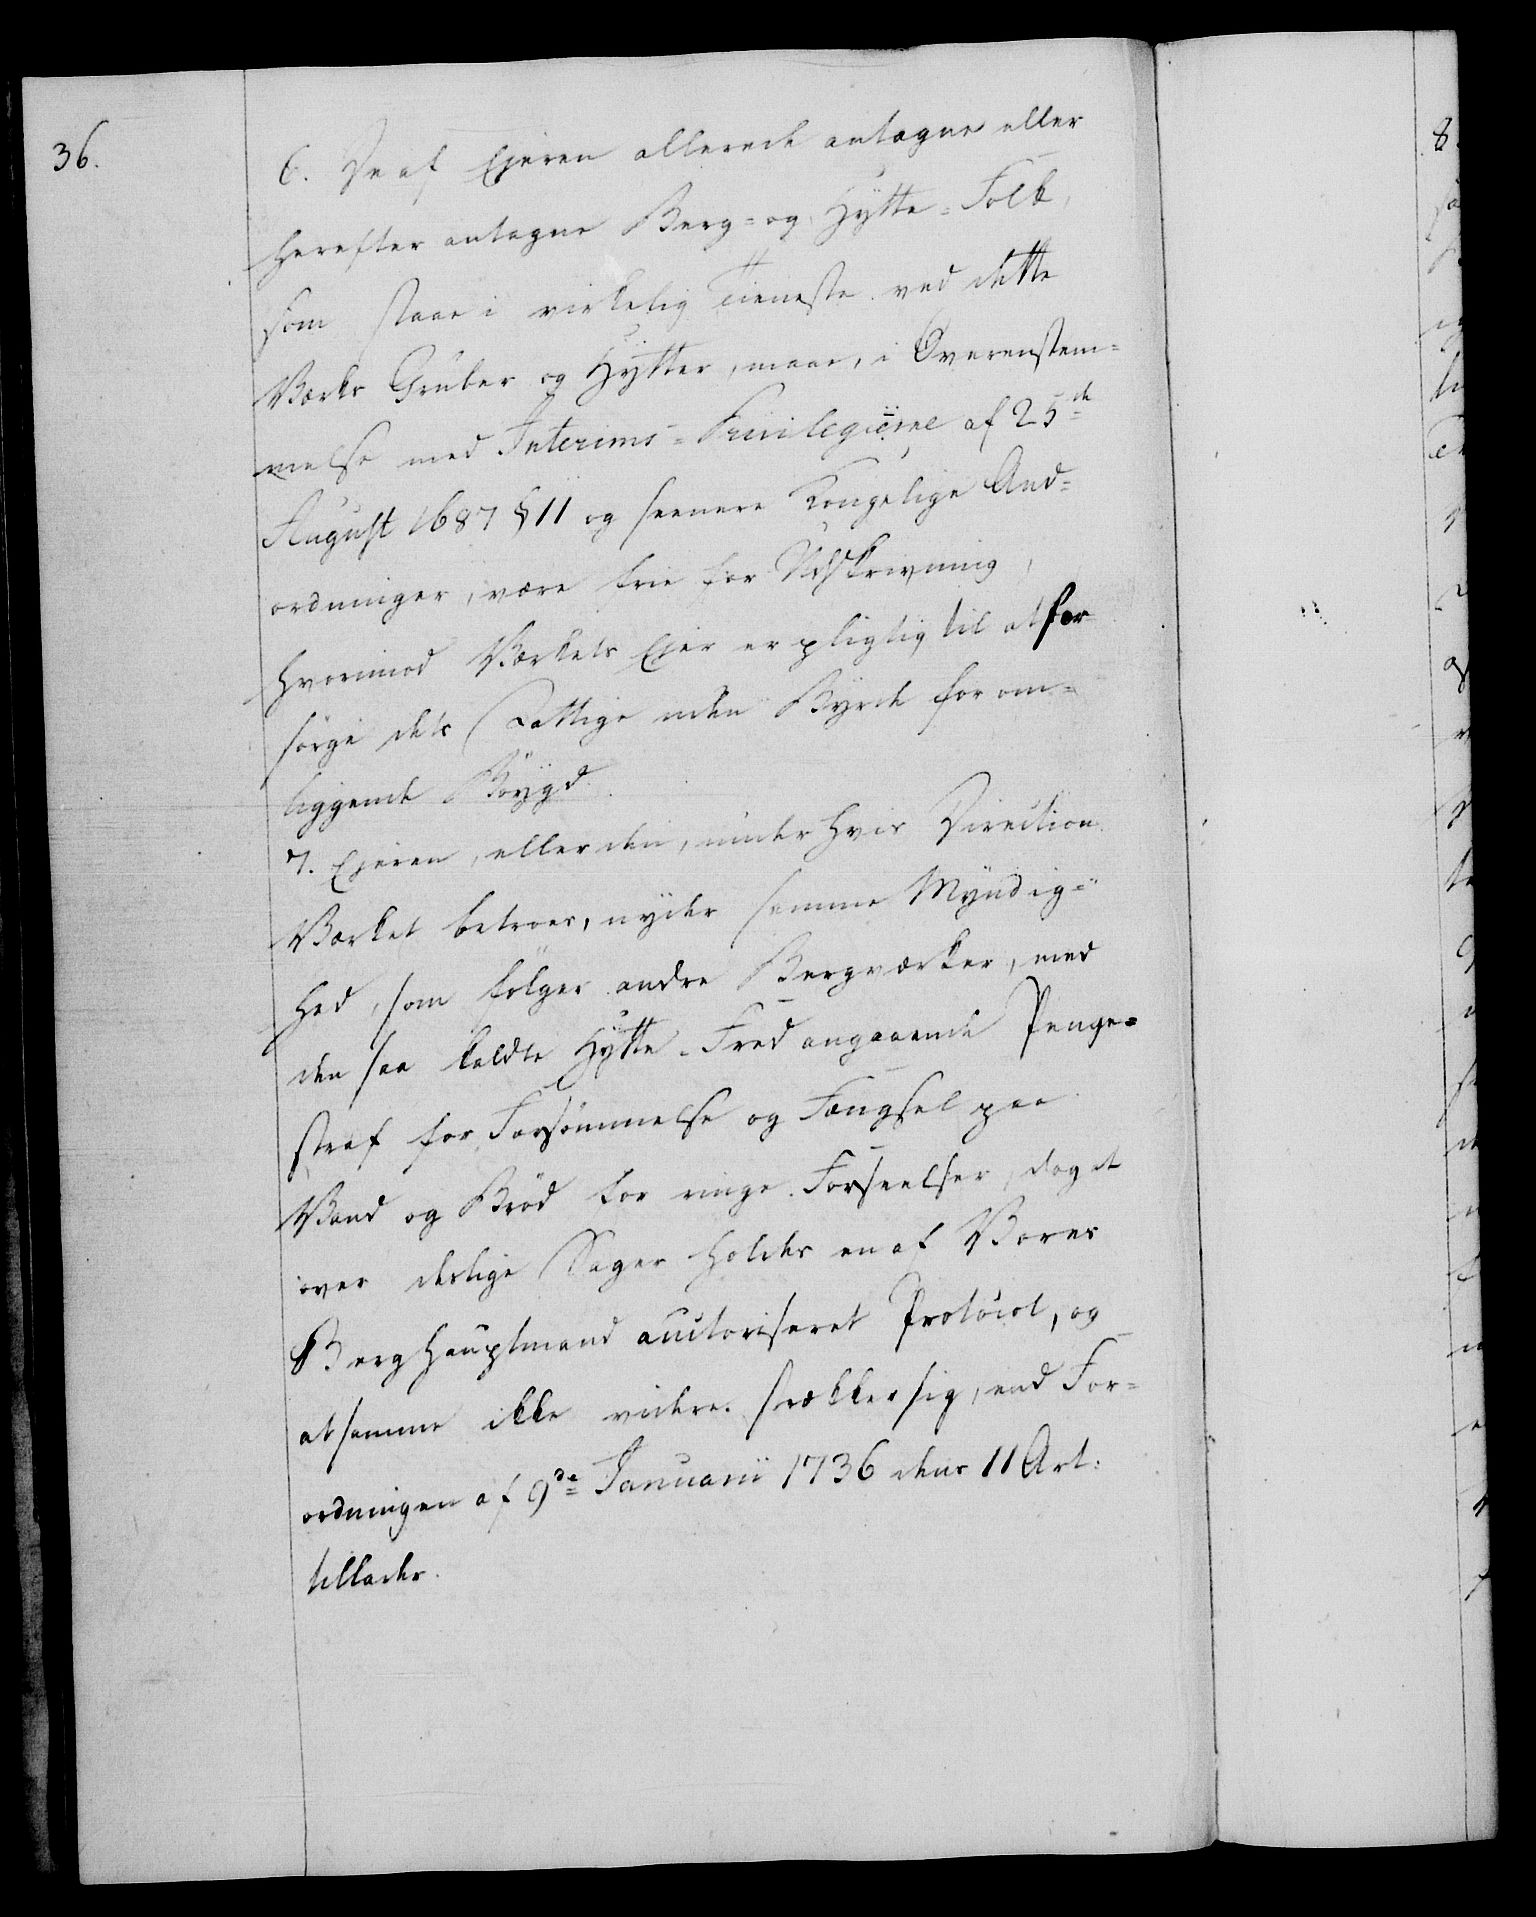 36.
6. De af Ejeren allerede antagne eller
herefter antagne Berg- og Hytte-Folk,
som staae i virkelig Tieneste ved dette
Værks Gruber og Hytter, maae, i Overenstem-
melse med Interims-Privilegierne af 25de
August 1687 § 11 og seenere Kongelige An-
ordninger, være frie for Udskrivning,
hvorimod Værkets Ejer er pligtig til at for-
sørge dets Fattige uden Byrde for om-
liggende Bøygd.
7. Ejeren, eller den, under hvis Direction
Værket betroes, nyder samme Myndig-
hed, som følger andre Bergværker, med
den saa kaldte Hytte-Fred angaaende Penge-
straf for Forsømmelse og Fængsel paa
Vand og Brød for ringe Forseelser, dog at
over deslige Sager holdes en af Vores
Berghauptmand auctoriseret Protocol, og
at samme ikke videre strækker sig, end For-
ordningen af 9de Januarii 1736 dens 11 Art:
tillader.
8.